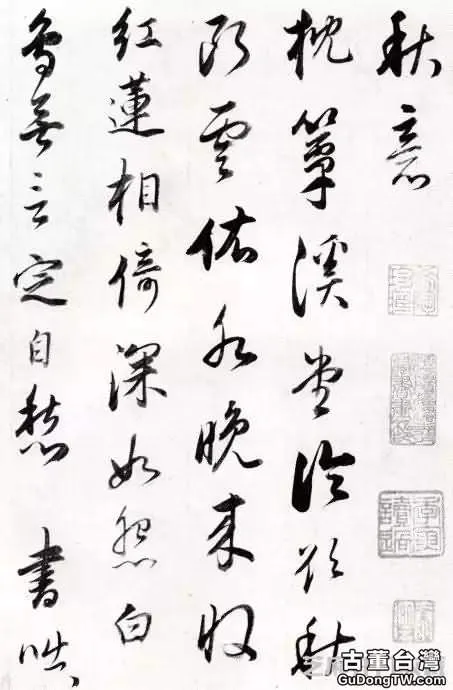 秋意
枕簟溪堂冷欲秋
斷雲依水晚來收
紅蓮相倚深如怨白
鳥無言定自愁 書咄
古董台灣
GuDongTW.com